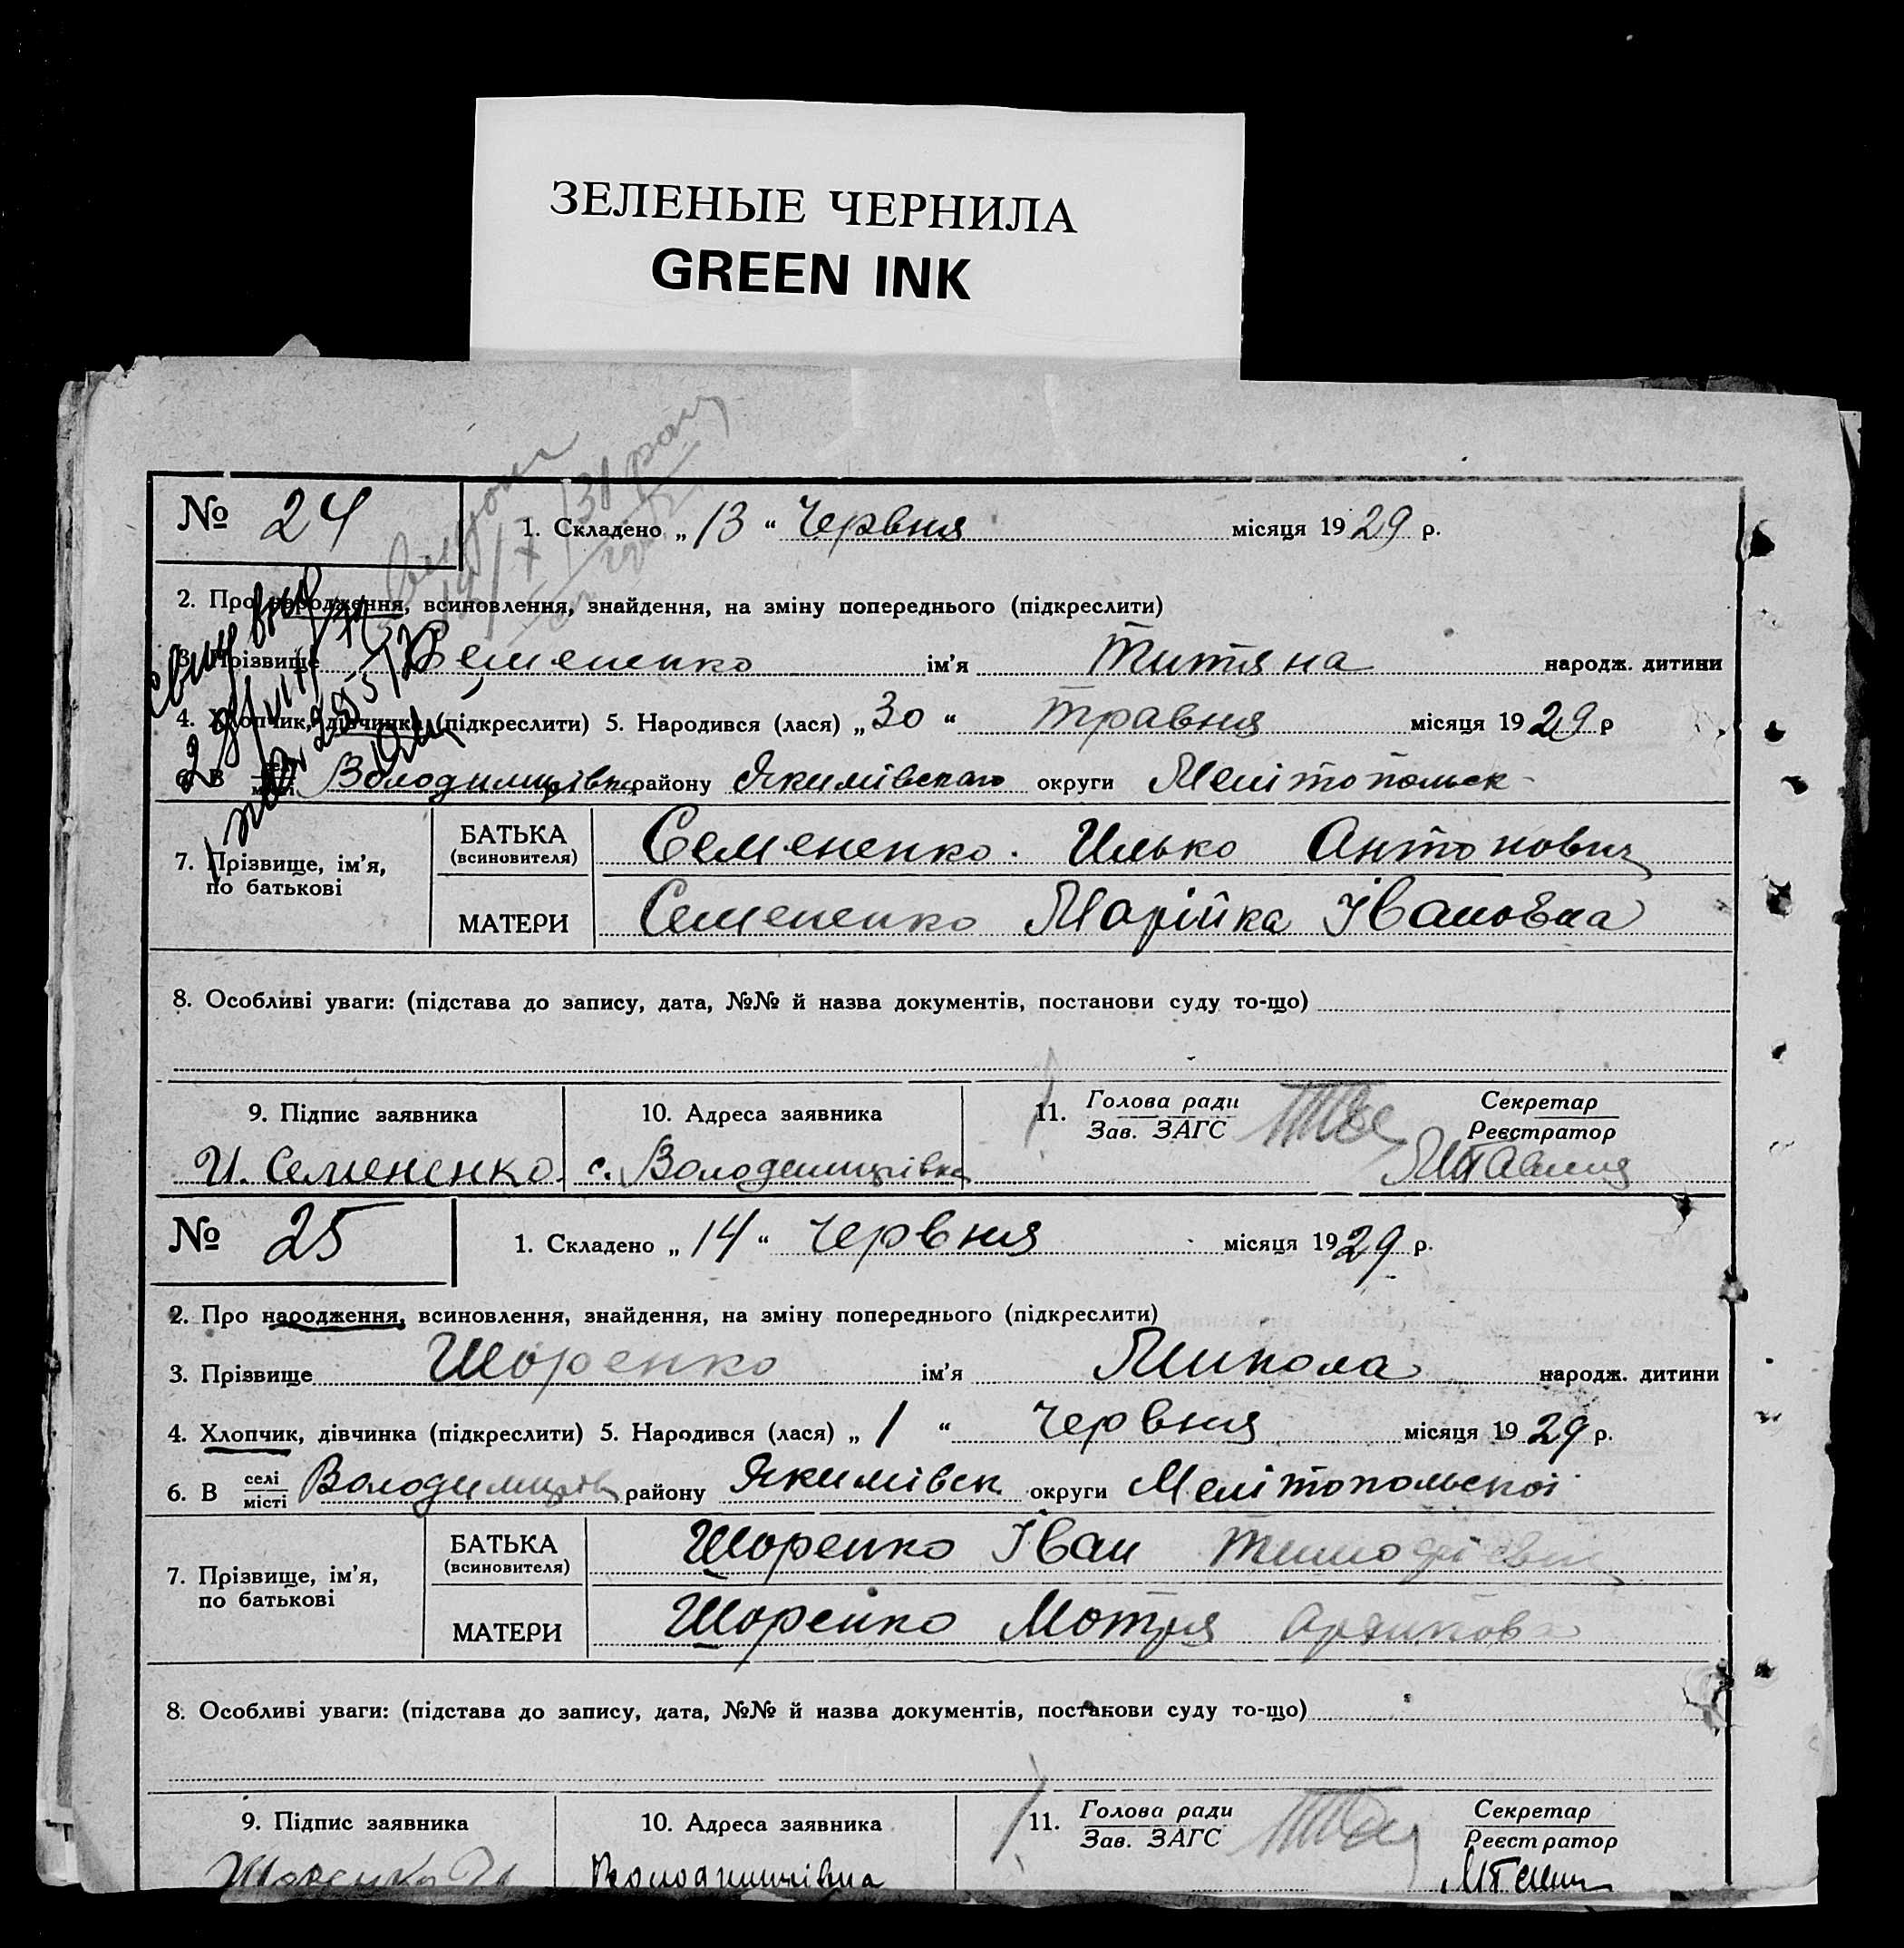 ЗЕЛЕНЫЕ ЧЕРНИЛА
GREEN INK
№ 24
1. Складено „13“ Червня місяця 1929 р.
2. Про народження, всиновлення, знайдення, на зміну попереднього (підкреслити)
3. Прізвище Семененко ім’я Титяна народж. дитини
4. Хлопчик, дівчинка (підкреслити) 5. Народився (лася) „30“ травня місяця 1929 р
6. В селі місті Володимирівка району Якимівского округи Мелітопольск
7. Прізвище, ім’я, по батькові
БАТЬКА (всиновителя) Семененко Илько Антонович
МАТЕРИ Семененко Марійка Івановна
8. Особливі уваги: (підстава до запису, дата, №№ й назва документів, постанови суду то-що)
9. Підпис заявника
10. Адреса заявника
11. Голова ради
Зав. ЗАГС
Секретар
Реєстратор
И. Семененко с. Володимирівка
№ 25
1. Складено „14“ червня місяця 1929 р.
2. Про народження, всиновлення, знайдення, на зміну попереднього (підкреслити)
3. Прізвище Шоренко ім’я Микола народж. дитини
4. Хлопчик, дівчинка (підкреслити) 5. Народився (лася) „1“ червня місяця 1929 р.
6. В селі місті Володимирів району Якимівск округи Мелітопольской
7. Прізвище, ім’я, по батькові
БАТЬКА (всиновителя) Шоренко Іван Тимофієвич
МАТЕРИ Шоренко Мотря
8. Особливі уваги: (підстава до запису, дата, №№ й назва документів, постанови суду то-що)
9. Підпис заявника
10. Адреса заявника
11. Голова ради
Зав. ЗАГС
Секретар
Реєстратор
Шоренко И Володимирівка